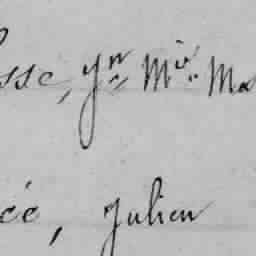 sse, Jn Mie Ma
cé, Julien